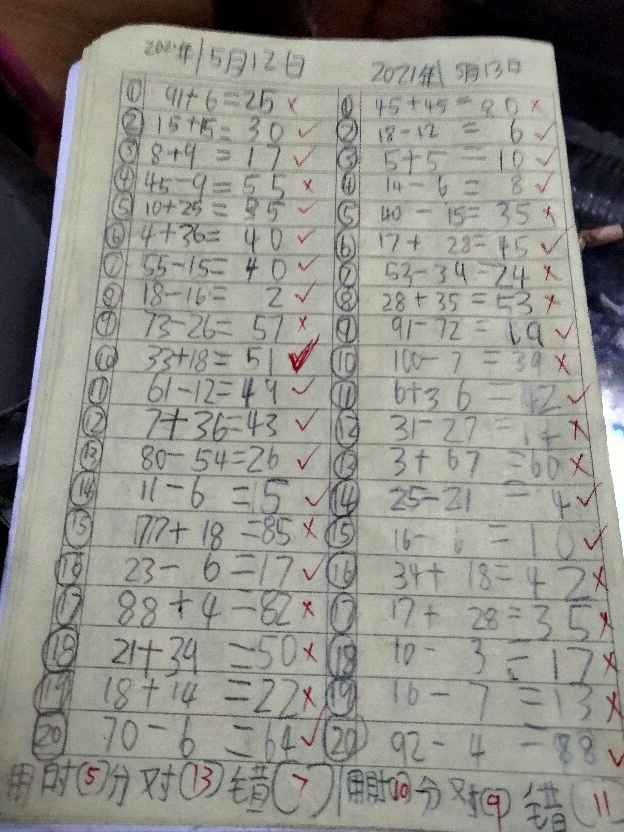 2021年5月12日
① 91+6=25 ×
② 15+15=30 ✓
③ 8+9=17 ✓
④ 45-9=55 ×
⑤ 10+25=35 ✓
⑥ 4+36=40 ✓
⑦ 55-15=40 ✓
⑧ 18-16=2 ✓
⑨ 73-26=57 ×
⑩ 33+18=51 ✓
⑪ 61-12=49 ✓
⑫ 7+36=43 ✓
⑬ 80-54=26 ✓
⑭ 11-6=5 ✓
⑮ 77+18=85 ×
⑯ 23-6=17 ✓
⑰ 88+4=82 ×
⑱ 21+39=50 ×
⑲ 18+14=22 ×
⑳ 70-6=64 ✓
用时(5)分对(13)错(7)
2021年5月13日
① 45+45=80 ×
② 18-12=6 ✓
③ 5+5=10 ✓
④ 14-6=8 ✓
⑤ 40-15=35 ×
⑥ 17+28=45 ✓
⑦ 53-39=24 ×
⑧ 28+35=53 ×
⑨ 91-72=19 ✓
⑩ 100-7=39 ×
⑪ 6+36=42 ✓
⑫ 31-27=14 ×
⑬ 3+67=60 ×
⑭ 25-21=4 ✓
⑮ 16-6=10 ✓
⑯ 34+18=42 ×
⑰ 17+28=35 ×
⑱ 10-3=17 ×
⑲ 16-7=13 ×
⑳ 92-4=88 ✓
用时(10)分对(9)错(11)